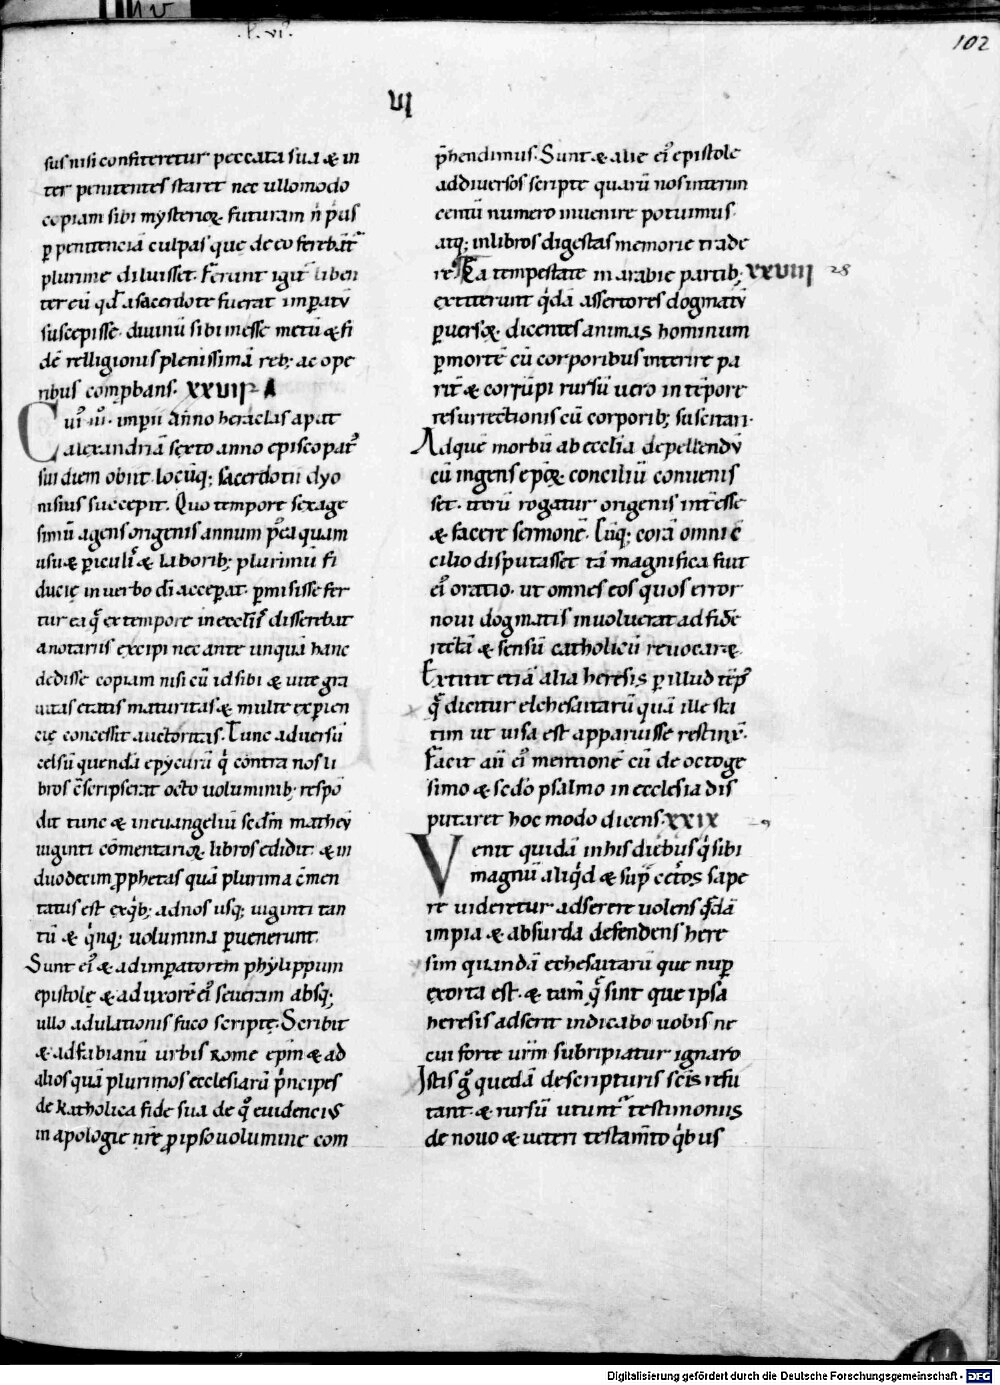 .l. vi.
102
VI
sus nisi confiteretur peccata sua & in
ter penitentes staret nec ullomodo
copiam sibi mysterioꝝ futuram ñ p̃us
ꝑ penitenciã culpas quę de eo ferebãt᷑
plurime diluisset. Ferunt igit᷑ liben
ter eũ qđ a sacerdote fuerat imꝑatũ
suscepisse. diuinũ sibi inesse metũ & fi
dẽ relligionis plenissimã reb; ac ope
ribus comꝓbans. XXVII A
Cui᷒ .iii. imꝑii anno heraclas aput
alexandriã sexto anno episcopat᷒
sui diem obiit. locũq; sacerdotii dyo
nisius suscepit. Quo tempore sexage
simũ agens origenis annum p̃ea quam
usu & ꝑiculi᷒ & laborib; plurimũ fi
ducię in uerbo dĩ acceꝑat. ꝑmisisse fer
tur ea q̃ extempore in ecclĩis disserebat
a notariis excipi nec ante unquã hanc
dedisse copiam nisi cũ id sibi & uite gra
uitas etatis maturitas & multe exꝑien
cię concessit auctoritas. Tunc aduersũ
celsũ quendã epycurũ q̇ contra nos li
bros c̃scripserat octo uoluminib; respõ
dit tunc & in euangeliũ scđm matheũ
uiginti cõmentarioꝝ libros edidit. & in
duodecim ꝓphetas quã plurima c̃men
tatus est. ex q̇b; ad nos usq; uiginti tan
tũ & q̇nq; uolumina ꝑuenerunt.
Sunt ei᷒ & ad imꝑatorem phylippum
epistolę & ad uxorẽ ei᷒ seueram absq;
ullo adulationis fuco scriptę. Scribit
& ad fabianũ urbis rome ep̃m & ad
alios quã plurimos ecclesiarũ p̃ncipes
de katholica fide sua de q̃ euidencius
in apologię nr̃e ꝓ ipso uolumine com
p̃hendimus. Sunt & alie ei᷒ epistole
ad diuersos scripte quarũ nos interim
centũ numero inuenire potuimus
atq; in libros digestas memorie trade
re. Ea tempestate in arabie partib; XXVIII 28
extiterunt q̇dã assertores dogmatũ
ꝑuersoꝝ. dicentes animas hominum
ꝑ mortẽ cũ corporibus interire pa
rit̃ & corrũpi rursũ uero in tẽpore
resurrectionis cũ corporib; suscitari.
Ad quẽ morbũ ab ecclĩa depellendũ
cũ ingens ep̃oꝝ conciliũ conuenis
set. iterũ rogatur origenis int̃esse
& facere sermonẽ. Cũq; corã omni c̃
cilio disputasset tã magnifica fuit
ei᷒ oratio. ut omnes eos quos error
noui dogmatis inuoluerat ad fidẽ
rectã & sensũ catholicũ reuocaret.
Extitit etiã alia heresis ꝑ illud tẽp᷒
q̃ dicitur elchesaitarũ quã ille sta
tim ut uisa est apparuisse restinx̃.
Facit aũ ei᷒ mentionẽ cũ de octoge
simo & sc̃do psalmo in ecclesia dis
putaret hoc modo dicens. XXIX 29
Venit quidã in his diebus q̇ sibi
magnũ aliq̇d & sup̃ cet̃os sape
re uideretur adserere uolens q̃dã
impia & absurda defendens here
sim quandã echesaitarũ que nuꝑ
exorta est. & tam̃ q̃ sint que ipsa
heresis adserit indicabo uobis ne
cui forte ur̃m subripiatur ignaro
Istis g̊ quedã de scripturis sc̃is refu
tant. & rursũ utunt᷑ testimoniis
de nouo & ueteri testam̃to q̇bus
Digitalisierung gefördert durch die Deutsche Forschungsgemeinschaft - DFG